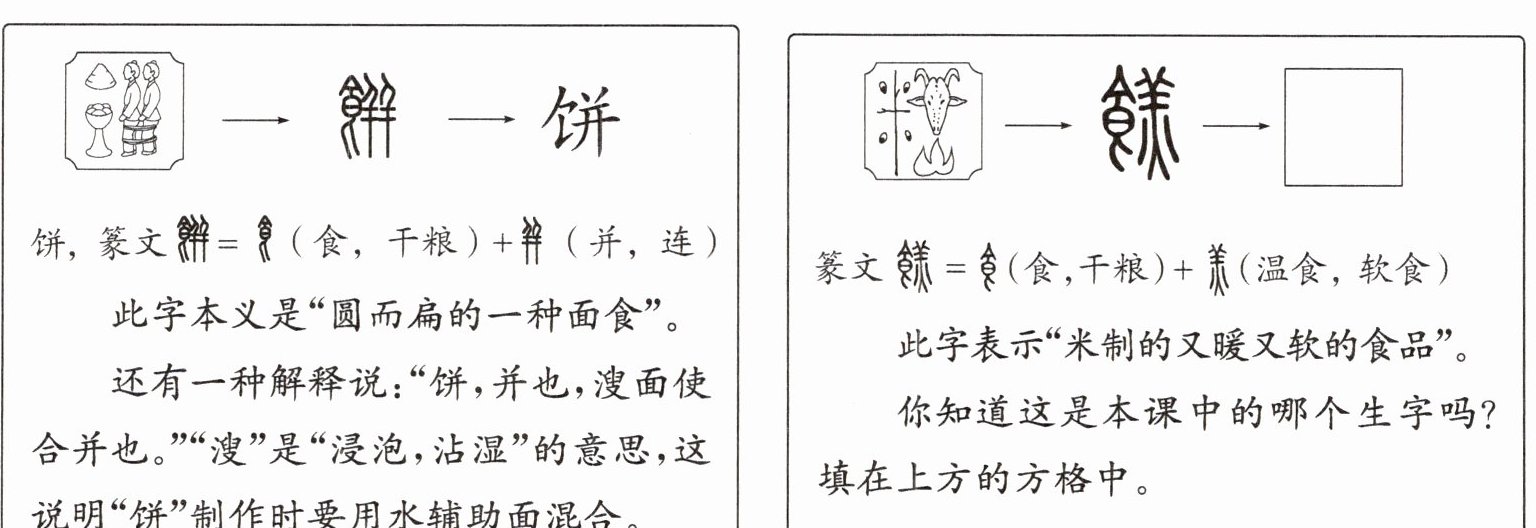 饼
饼，篆文 =（食，干粮）+（并，连）
此字本义是“圆而扁的一种面食”。
还有一种解释说：“饼，并也，溲面使
合并也。”“溲”是“浸泡，沾湿”的意思，这
说明“饼”制作时要用水辅助面混合。
篆文 =（食，干粮）+（温食，软食）
此字表示“米制的又暖又软的食品”。
你知道这是本课中的哪个生字吗？
填在上方的方格中。